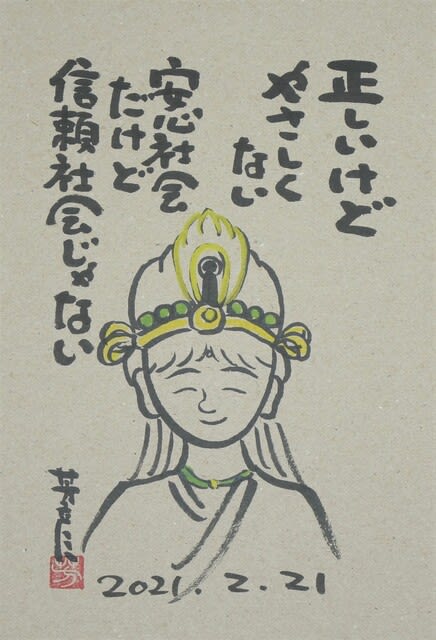 正しいけど
やさしく
ない
安心社会
だけど
信頼社会じゃない
2021.2.21